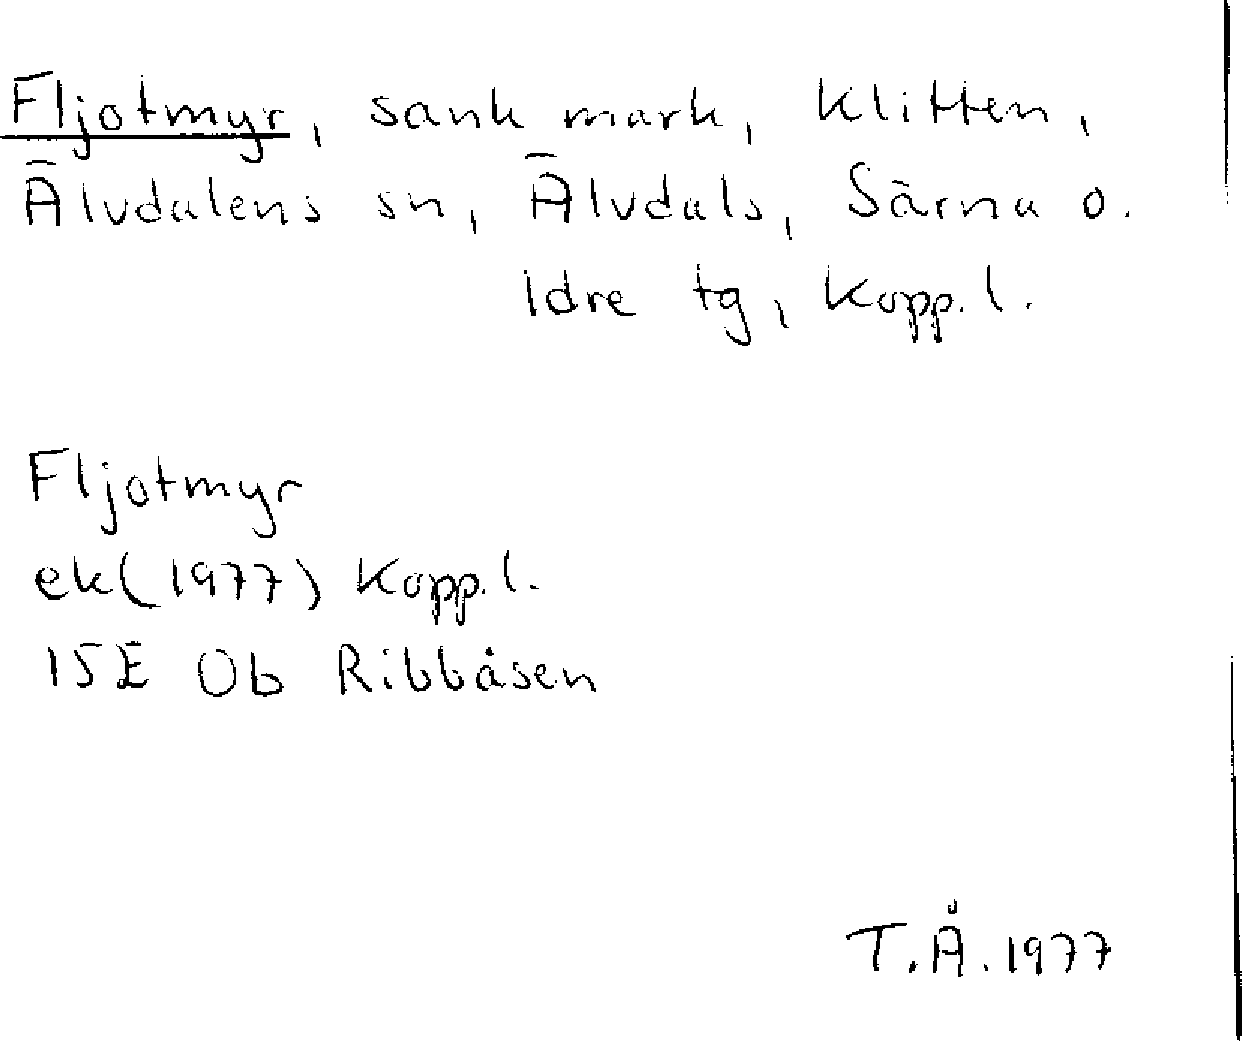 Fljotmyr, sank mark, Klitten,
Älvdalens sn, Älvdals, Särna o.
Idre tg, Kopp.l.
Fljotmyr
ek(1977) Kopp.l.
15E 0b Ribbåsen
T.Å. 1977